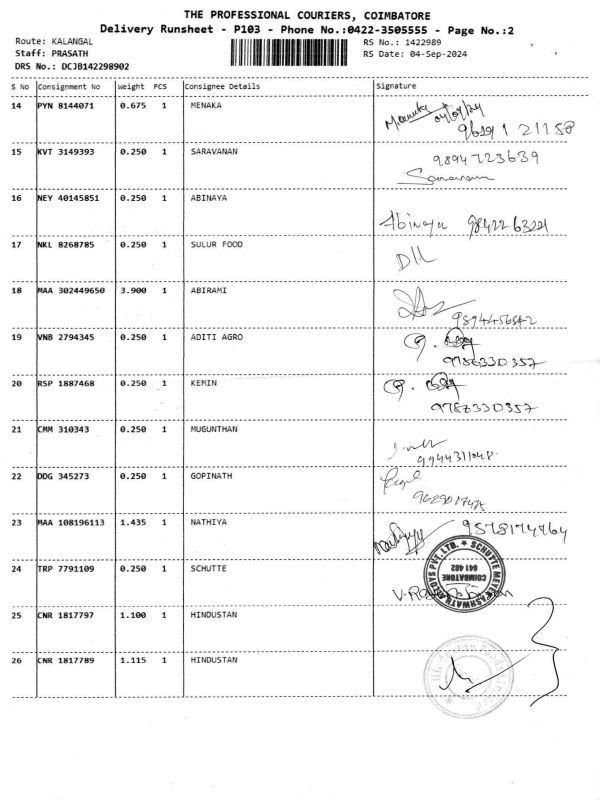 THE PROFESSIONAL COURIERS, COIMBATORE
Delivery Runsheet - P103 - Phone No.:0422-3505555 - Page No.:2
Route: KALANGAL RS No.: 1422989
Staff: PRASATH RS Date: 04-Sep-2024
DRS No.: DCJB142298902
S No Consignment No Weight PCS Consignee Details Signature
14 PYN 8144071 0.675 1 MENAKA Menaka
15 KVT 3149393 0.250 1 SARAVANAN 9894723639
Saravanan
16 NEY 40145851 0.250 1 ABINAYA
Abinaya 9842263221
17 NKL 8268785 0.250 1 SULUR FOOD
18 MAA 302449650 3.900 1 ABIRAMI
19 VNB 2794345 0.250 1 ADITI AGRO
9786330357
20 RSP 1887468 0.250 1 KEMIN
9786330357
21 CMM 310343 0.250 1 MUGUNTHAN
22 DDG 345273 0.250 1 GOPINATH
23 MAA 108196113 1.435 1 NATHIYA
24 TRP 7791109 0.250 1 SCHUTTE
COIMBATORE
641 402
25 CNR 1817797 1.100 1 HINDUSTAN
26 CNR 1817789 1.115 1 HINDUSTAN